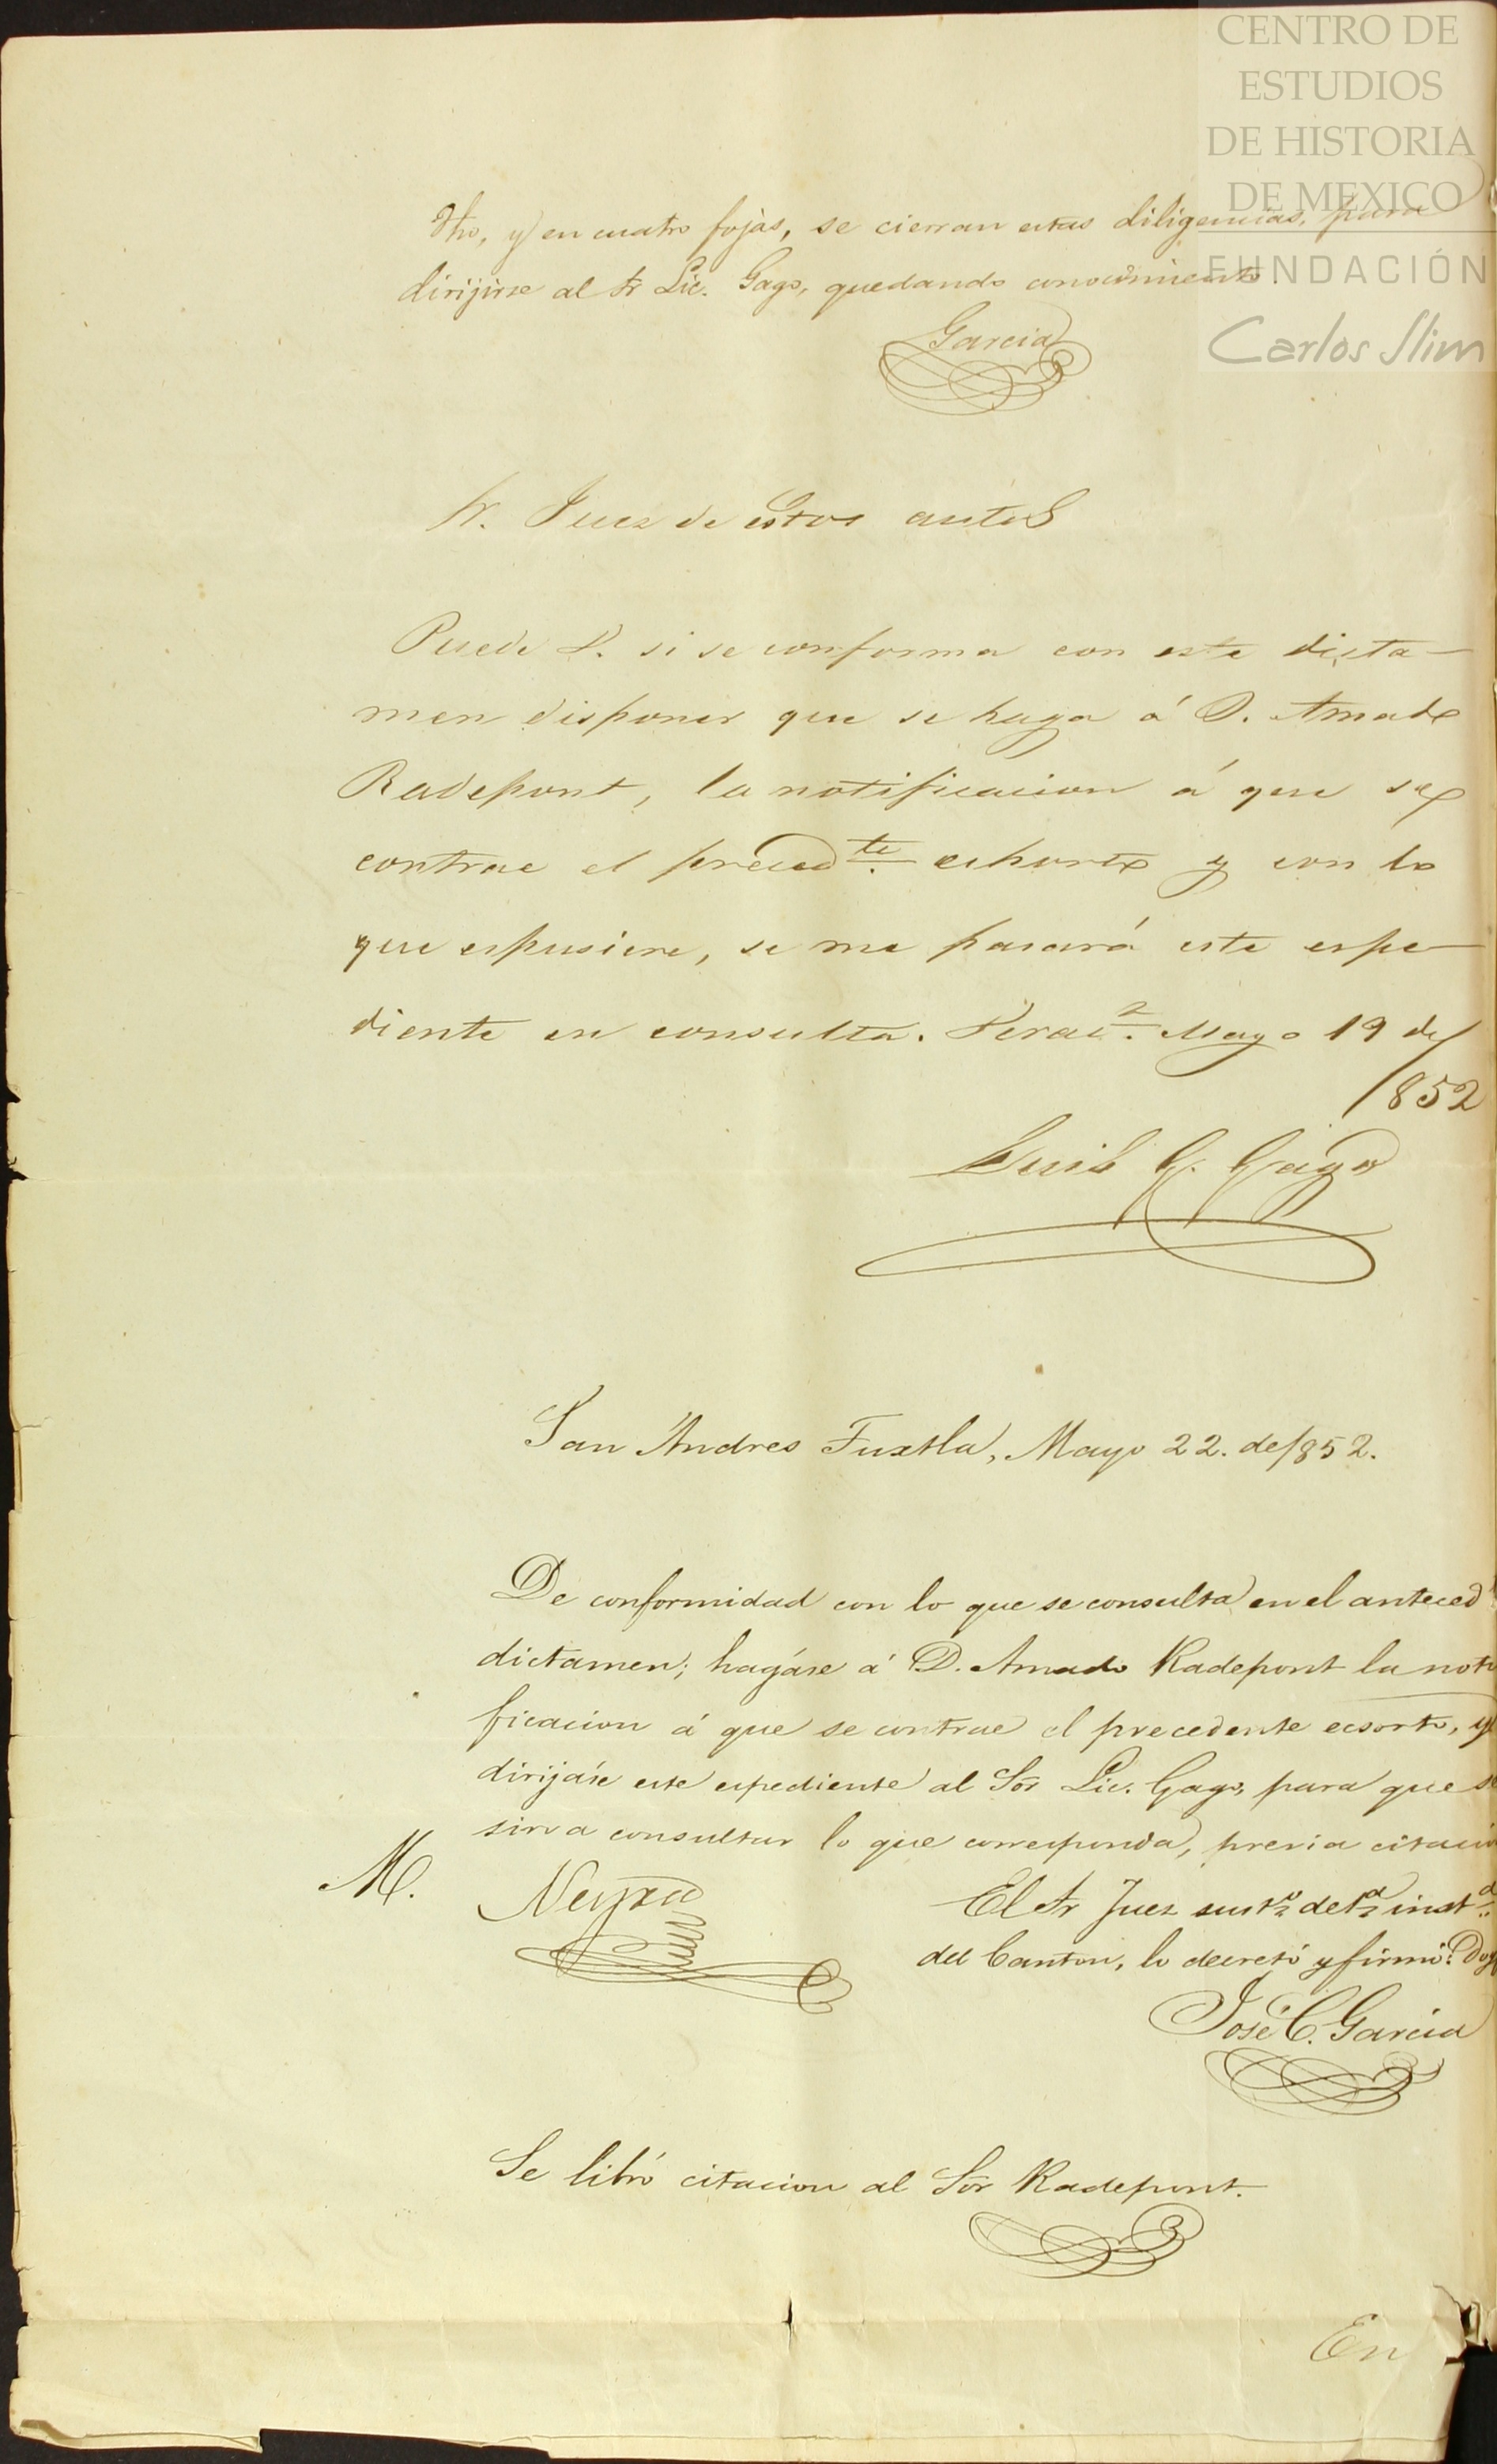 CENTRO DE
ESTUDIOS
DE HISTORIA
DE MEXICO
FUNDACIÓN
Carlos Slim
dho, y en cuatro fojas, se cierran estas diligencias, para
dirijirse al Sr Lic. Gago, quedando conocimiento.
Garcia
Sr. Juez de estos autos
Puede V. si se conforma con este dicta-
men disponer que se haga á D. Amado
Radepont, la notificacion á que se
contrae el preced.te exhorto y con lo
que espusiere, se me pasará este espe-
diente en consulta. Verac.z Mayo 19 de
1852
Luis G. Gago
San Andres Tuxtla, Mayo 22. de 1852.
De conformidad con lo que se consulta en el anteced
dictamen; hagáse á D. Amado Radepont la noti
ficacion á que se contrae el precedente ecsorto, y
dirijáse este espediente al Sõr Lic. Gago, para que se
sirva consultar lo que corresponda, previa citació
M.
Neyra
El Sr Juez sust.o de 1.a inst.a
del Canton, lo decretó y firmó. Doy
José C. Garcia
Se libró citacion al Sõr Radepont.
En